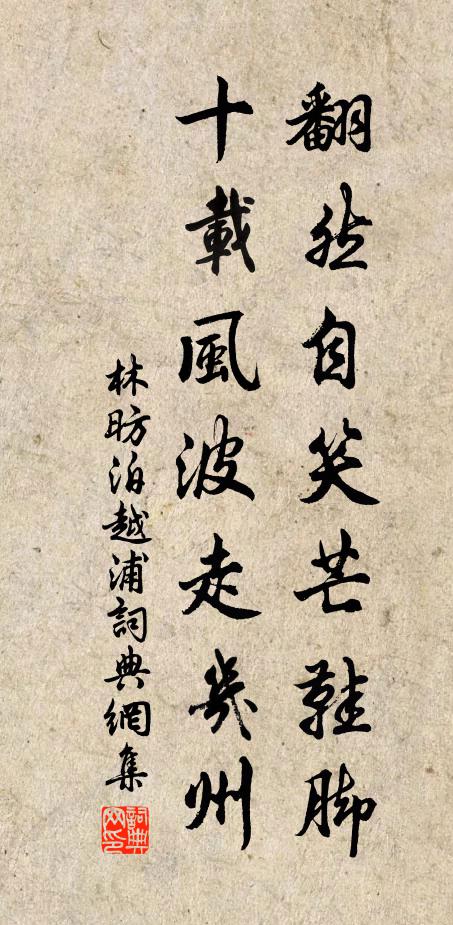 翻然自笑芒鞋脚
十載風波走幾州
林昉泊越浦詞典網集
詞典網印